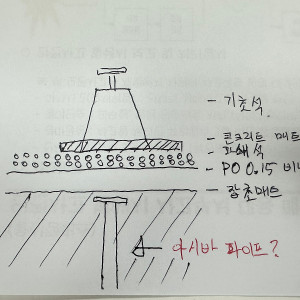 - 기초석
- 콘크리트 매트
- 파쇄석
- PO 0.15 비닐
- 잡초매트
아시바 파이프?